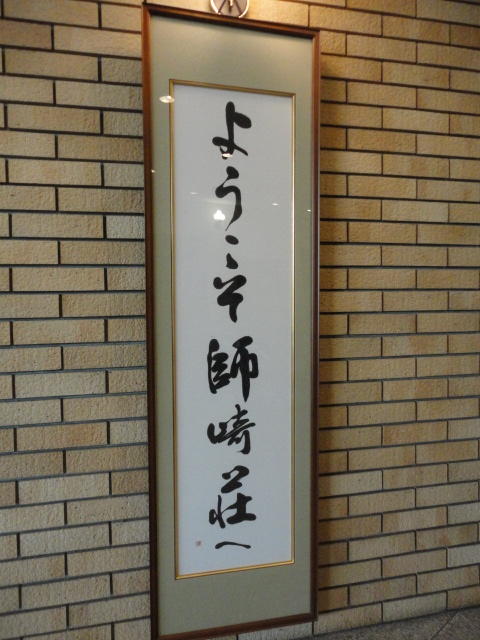 ようこそ師崎荘へ